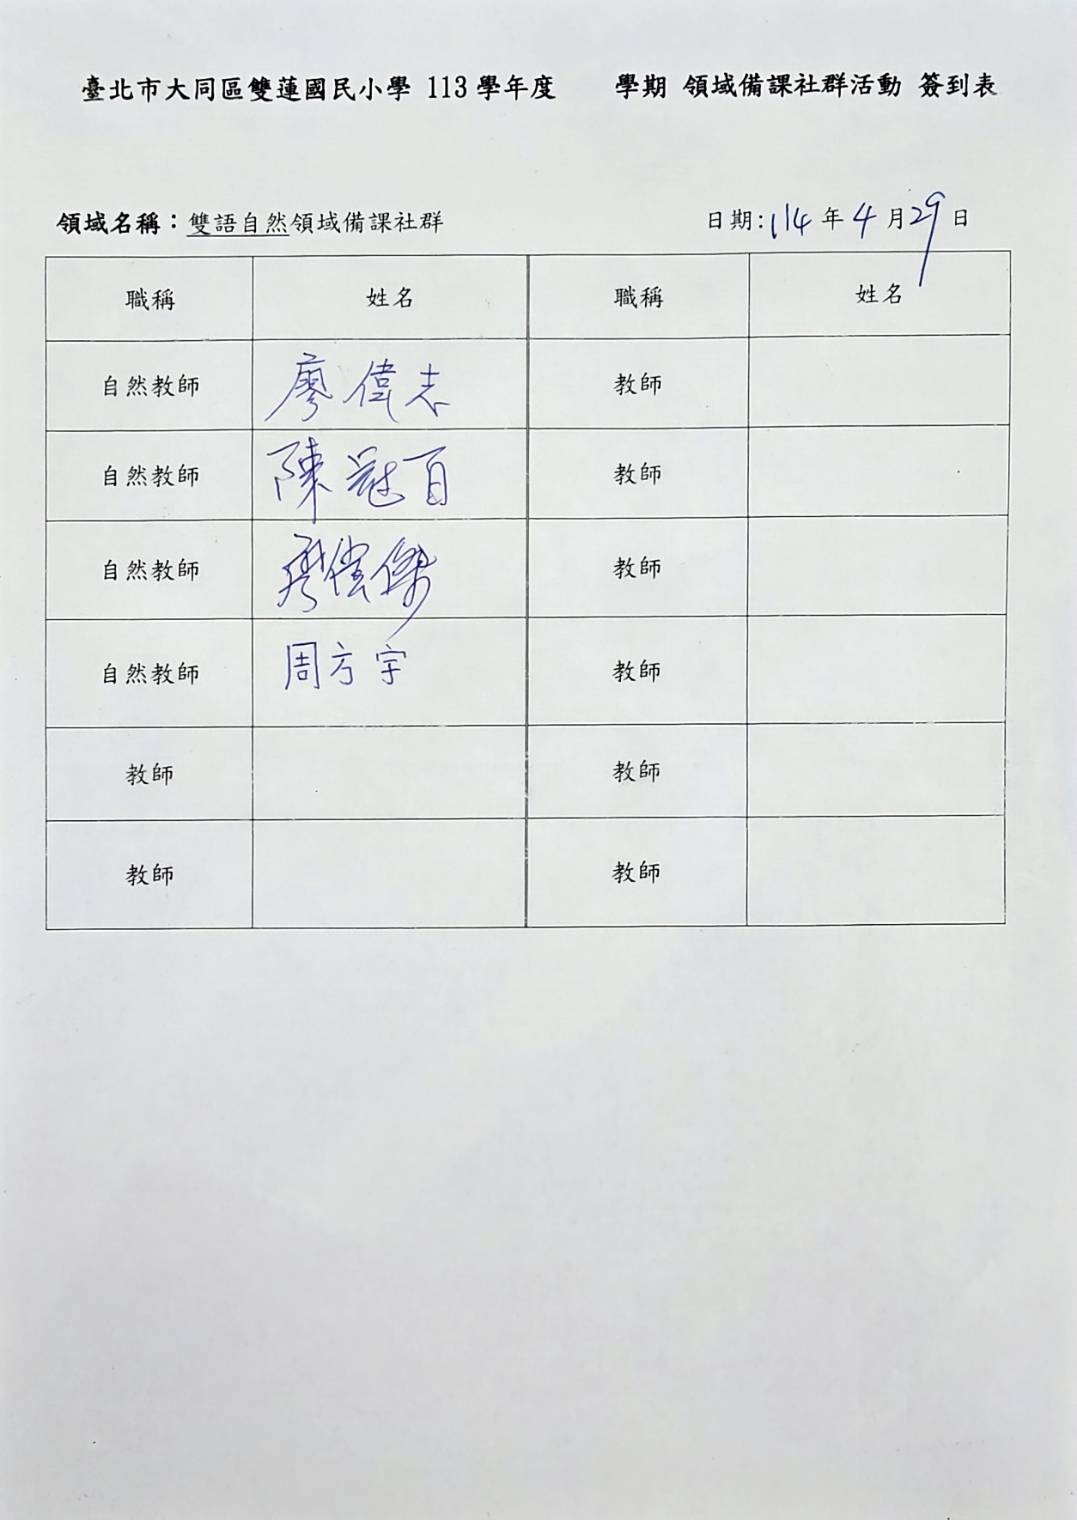 臺北市大同區雙蓮國民小學 113 學年度 學期 領域備課社群活動 簽到表
領域名稱：雙語自然領域備課社群 日期:114 年 4 月 29 日
職稱 姓名 職稱 姓名
自然教師 廖偉志 教師
自然教師 陳冠百 教師
自然教師 傑 教師
自然教師 周方宇 教師
教師 教師
教師 教師